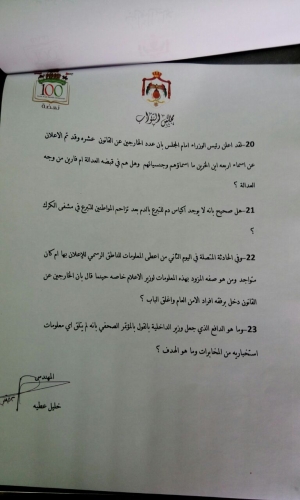 100
نهضة
مجلس النواب
20-لقد اعلن رئيس الوزراء امام المجلس بان عدد الخارجين عن القانون عشره وقد تم الاعلان
عن اسماء اربعه اين الاخرين ما اسماؤهم وجنسياتهم وهل هم في قبضه العدالة ام فارين من وجه
العدالة ؟
21-هل صحيح بانه لا يوجد أكياس دم للتبرع بالدم بعد تزاحم المواطنين للتبرع في مشفى الكرك
؟
22-وفي الحادثة المتصلة في اليوم الثاني من اعطى المعلومات للناطق الرسمي للإعلان بها ام كان
متواجد ومن هو صفه المزود بهذه المعلومات لوزير الاعلام خاصه حينما قال بان الخارجين عن
القانون دخل برفقه افراد الامن العام واغلق الباب ؟
23-وما هو الدافع الذي جعل وزير الداخلية بالقول بالمؤتمر الصحفي بانه لم يتلق اي معلومات
استخباريه من المخابرات وما هو الهدف ؟
المهندس
خليل عطيه